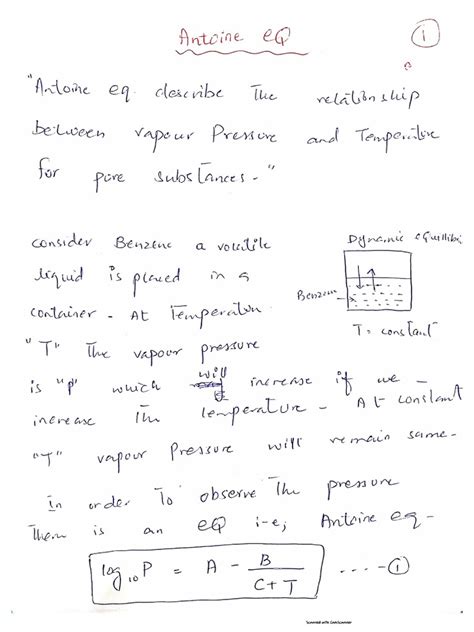 Antoine eQ
1
"Antoine eq. describe The relationship
between vapour Pressure and Temperature
for pure substances."
consider Benzene a volatile
liquid is placed in a
container. At Temperature
"T" The vapour pressure
Dynamic equilibi
Benzene
T = constant
is "p" which will increase if we
increase The temperature. At constant
"T" vapour Pressure will remain same.
In order To observe The pressure
There is an eQ i-e; Antoine eq.
log₁₀P = A - B/(C+T) ----(1)
Scanned with CamScanner